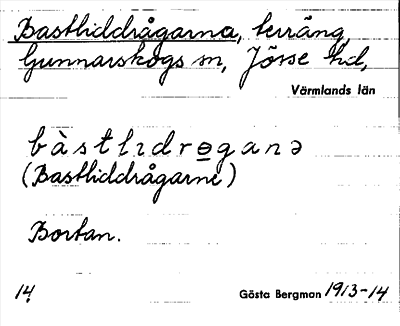 Bastliddrågarna, terräng,
Gunnarskogs sn, Jösse hd,
Värmlands län
bàstlıdrɵganə
(Bastliddrågarne)
Bortan.
14. Gösta Bergman 1913-14